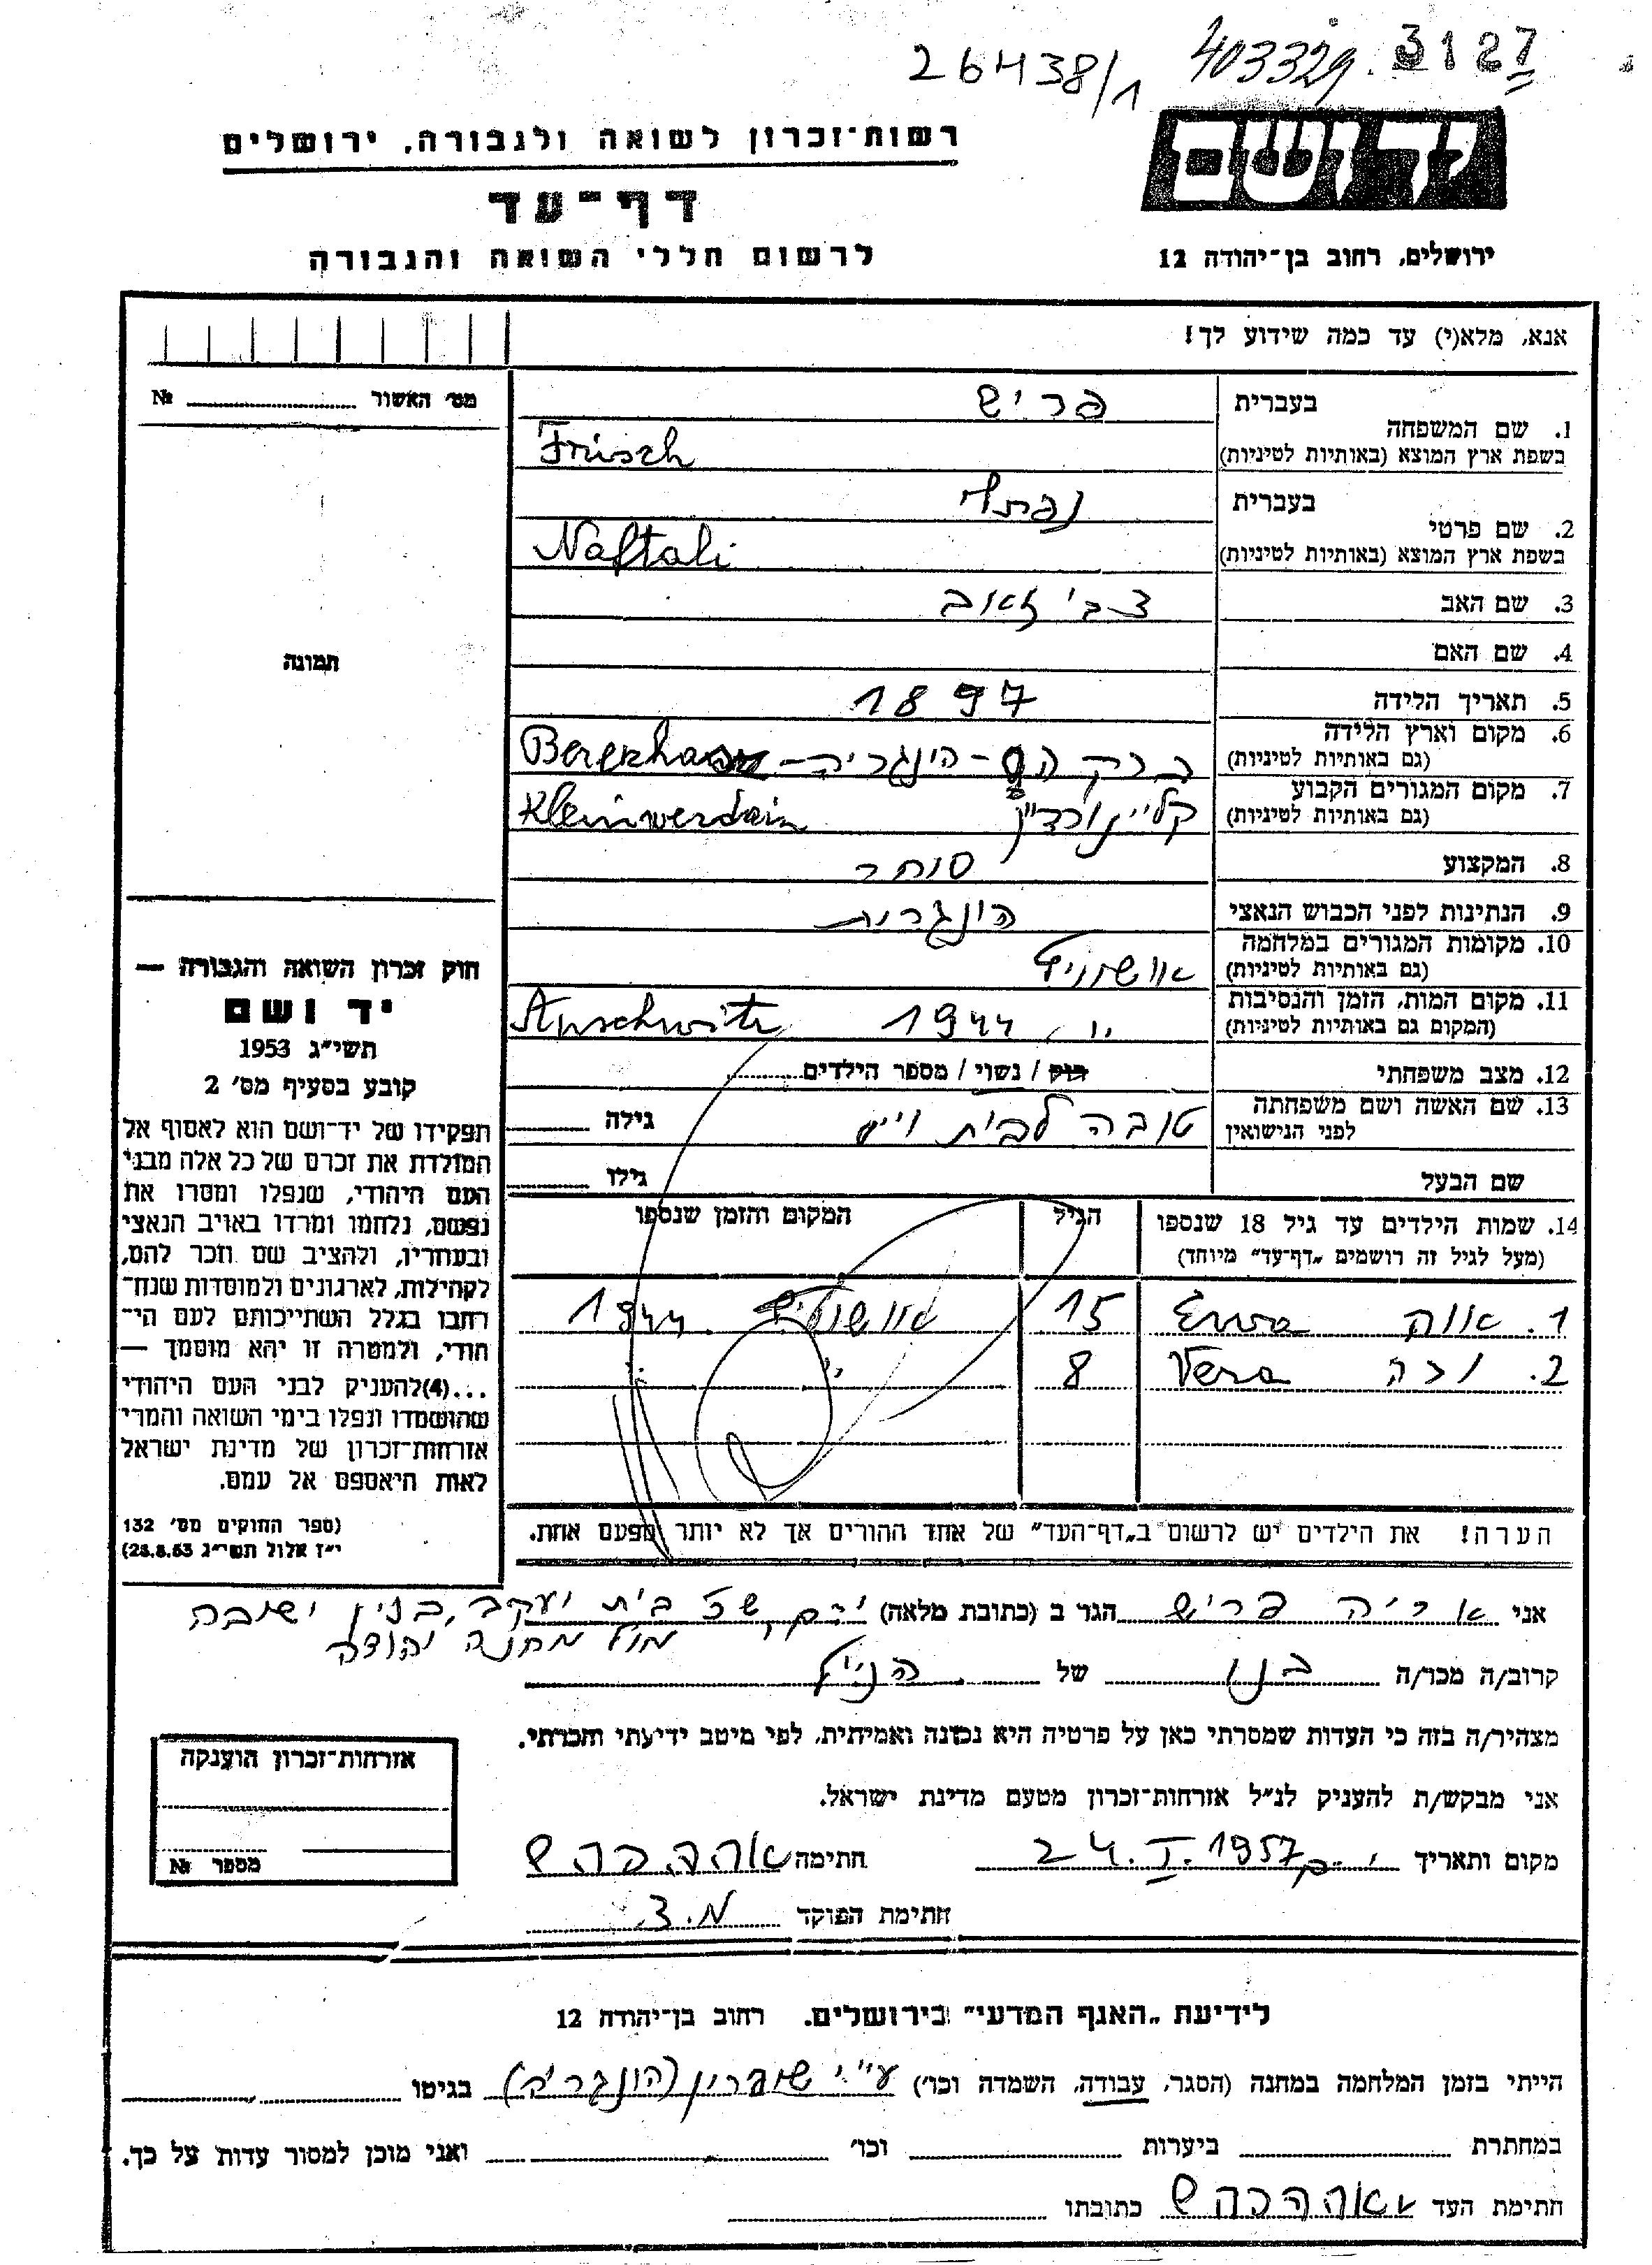 26438/1 403329 3127
יד ושם
רשות־זכרון לשואה ולגבורה, ירושלים
דף־עד
לרשום חללי השואה והגבורה
ירושלים, רחוב בן־יהודה 12
אנא, מלא(י) עד כמה שידוע לך!
מס׳ האשור № 
תמונה
בעברית פריש
1. שם המשפחה
בשפת ארץ המוצא (באותיות לטיניות) Frisch
בעברית נפתלי
2. שם פרטי
בשפת ארץ המוצא (באותיות לטיניות) Naftali
3. שם האב צבי זאב
4. שם האם
5. תאריך הלידה 1897
6. מקום וארץ הלידה
(גם באותיות לטיניות) הונגריה
7. מקום המגורים הקבוע
(גם באותיות לטיניות) קליינורדיין Kleinwerdain
8. המקצוע סוחר
9. הנתינות לפני הכבוש הנאצי הונגרית
10. מקומות המגורים במלחמה
(גם באותיות לטיניות) אושוויץ
11. מקום המות, הזמן והנסיבות
(המקום גם באותיות לטיניות) " 1944 Auschwitz
12. מצב משפחתי רוק / נשוי / מספר הילדים
13. שם האשה ושם משפחתה
לפני הנישואין טובה לבית וייס גילה
שם הבעל גילו
14. שמות הילדים עד גיל 18 שנספו הגיל המקום והזמן שנספו
(מעל לגיל זה רושמים „דף־עד” מיוחד)
1. אווה Ewa 15 אושוויץ 1944
2. ורה Vera 8 " "
הערה! את הילדים יש לרשום ב„דף־העד” של אחד ההורים אך לא יותר מפעם אחת.
חוק זכרון השואה והגבורה —
יד ושם
תשי״ג 1953
קובע בסעיף מס׳ 2
תפקידו של יד־ושם הוא לאסוף אל
המולדת את זכרם של כל אלה מבני
העם היהודי, שנפלו ומסרו את
נפשם, נלחמו ומרדו באויב הנאצי
ובעוזריו, ולהציב שם וזכר להם,
לקהילות, לארגונים ולמוסדות שנח־
רחבו בגלל השתייכותם לעם הי־
הודי, ולמטרה זו יהא מוסמך —
...(4)להעניק לבני העם היהודי
שהושמדו ונפלו בימי השואה והמרי
אזרחות־זכרון של מדינת ישראל
לאות היאספם אל עמם.
(ספר החוקים מס׳ 132
י״ז אלול תשי״ג 28.8.53)
אני אריה פריש הגר ב (כתובת מלאה) בית יעקב, בנין ישיבה
מול מחנה יהודה
קרוב/ה מכר/ה בנו של הנ״ל
מצהיר/ה בזה כי העדות שמסרתי כאן על פרטיה היא נכונה ואמיתית, לפי מיטב ידיעתי והכרתי.
אני מבקש/ת להעניק לנ״ל אזרחות־זכרון מטעם מדינת ישראל.
מקום ותאריך 24.I.1957 חתימה
חתימת הפוקד מ.צ.
אזרחות־זכרון הוענקה
מספר №
לידיעת „האגף המדעי” בירושלים. רחוב בן־יהודה 12
הייתי בזמן המלחמה במחנה (הסגר, עבודה, השמדה וכו׳) ע״י שופרון (הונגריה) בגיטו
במחתרת ביערות וכו׳ ואני מוכן למסור עדות על כך.
חתימת העד כתובתו